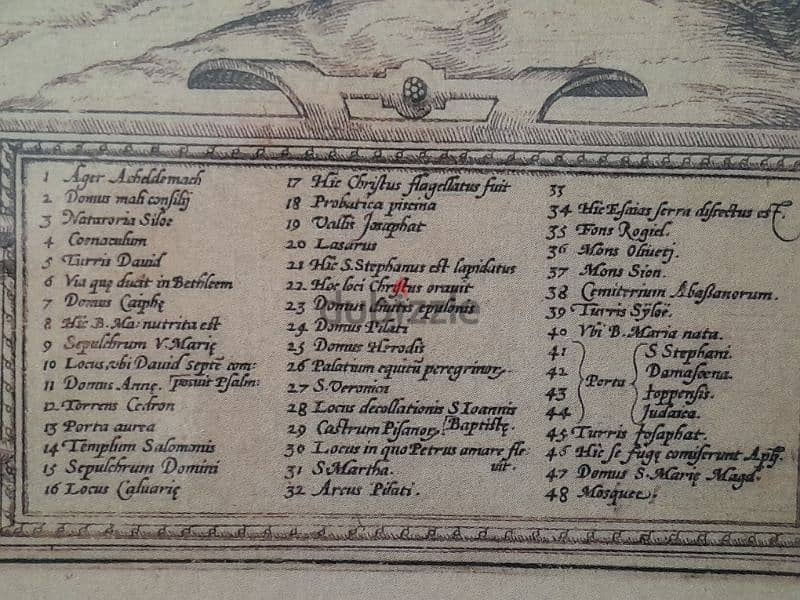 1 Ager Acheldemach
2 Domus mali consilij
3 Nataroria Siloe
4 Coenaculum
5 Turris David
6 Via quę ducit in Bethleem
7 Domus Caiphę
8 Hic B. Ma: nutrita est
9 Sepulchrum V. Marię
10 Locus, ubi David septē com:
11 Domus Annę. posuit Psalm:
12 Torrens Cedron
13 Porta aurea
14 Templum Salomonis
15 Sepulchrum Domini
16 Locus Caluarię
17 Hic Christus flagellatus fuit
18 Probatica piscina
19 Vallis Josaphat
20 Lasarus
21 Hic S. Stephanus est lapidatus
22 Hoc loci Christus orauit
23 Domus diuitis epulonis
24 Domus Pilati
25 Domus Herodis
26 Palatium equitū peregrinor,
27 S. Veronica
28 Locus decollationis S Ioannis
29 Castrum Pisanor, Baptistę.
30 Locus in quo Petrus amare fle:
uit.
31 S. Martha.
32 Arcus Pilati.
33
34 Hic Esaias serra dissectus est.
35 Fons Rogiel.
36 Mons Oliueti.
37 Mons Sion.
38 Cemiterium Abaßanorum.
39 Turris Syloë.
40 Vbi B. Maria nata.
41 S Stephani.
42 Damascena.
Porta
43 Joppensis.
44 Judaica.
45 Turris Josaphat.
46 Hic se fugę comiserunt Apli.
47 Domus S. Marię Magd.
48 Mosquee.
dubizzle